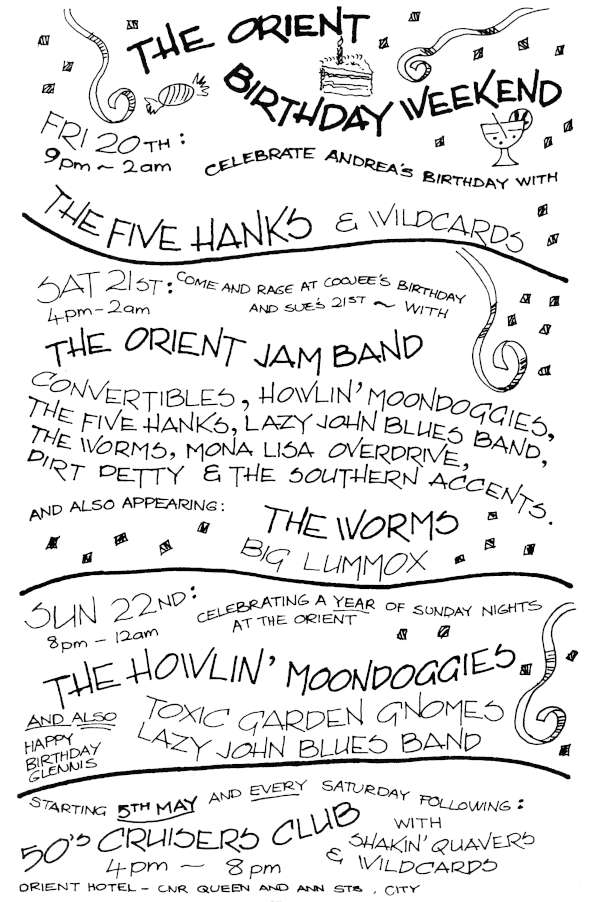 THE ORIENT
BIRTHDAY WEEKEND
FRI 20TH:
9pm ~ 2am
CELEBRATE ANDREA'S BIRTHDAY WITH
THE FIVE HANKS & WILDCARDS
SAT 21ST:
4pm - 2am
COME AND RAGE AT COOJEE'S BIRTHDAY
AND SUE'S 21ST ~ WITH
THE ORIENT JAM BAND
CONVERTIBLES, HOWLIN' MOONDOGGIES,
THE FIVE HANKS, LAZY JOHN BLUES BAND,
THE WORMS, MONA LISA OVERDRIVE,
DIRT PETTY & THE SOUTHERN ACCENTS.
AND ALSO APPEARING:
THE WORMS
BIG LUMMOX
SUN 22ND:
8pm - 12am
CELEBRATING A YEAR OF SUNDAY NIGHTS
AT THE ORIENT
THE HOWLIN' MOONDOGGIES
AND ALSO
HAPPY
BIRTHDAY
GLENNIS
TOXIC GARDEN GNOMES
LAZY JOHN BLUES BAND
STARTING 5TH MAY AND EVERY SATURDAY FOLLOWING:
50'S CRUISERS CLUB
4pm ~ 8pm
WITH
SHAKIN' QUAVERS
& WILDCARDS
ORIENT HOTEL - CNR QUEEN AND ANN STS, CITY